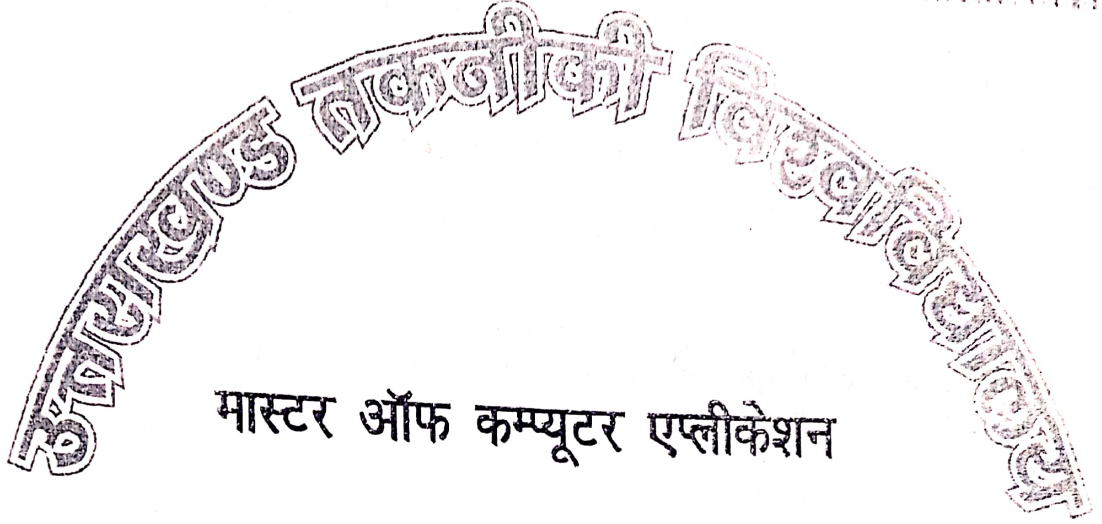 उत्तराखण्ड तकनीकी विश्वविद्यालय
मास्टर ऑफ कम्प्यूटर एप्लीकेशन